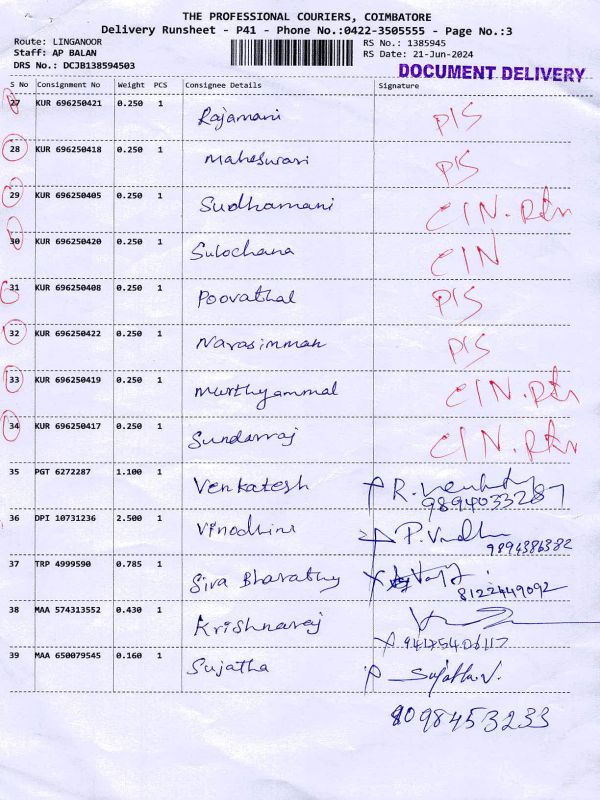 THE PROFESSIONAL COURIERS, COIMBATORE
Delivery Runsheet - P41 - Phone No.:0422-3505555 - Page No.:3
Route: LINGANOOR RS No.: 1385945
Staff: AP BALAN RS Date: 21-Jun-2024
DRS No.: DCJB138594503 DOCUMENT DELIVERY
S No Consignment No Weight PCS Consignee Details Signature
27 KUR 696250421 0.250 1 Rajamani P/S
28 KUR 696250418 0.250 1 Maheswari P/S
29 KUR 696250405 0.250 1 Sudhamani C/N.Rtn
30 KUR 696250420 0.250 1 Sulochana C/N
31 KUR 696250408 0.250 1 Poovathal P/S
32 KUR 696250422 0.250 1 Narasimmah P/S
33 KUR 696250419 0.250 1 Murthyammal C/N.Rtn
34 KUR 696250417 0.250 1 Sundarraj C/N.Rtn
35 PGT 6272287 1.100 1 Venkatesh R.
9894033287
36 DPI 10731236 2.500 1 Vinodhini P.
9894386382
37 TRP 4999590 0.785 1 Siva Bharathy
8122449092
38 MAA 574313552 0.430 1 Krishnaraj
39 MAA 650079545 0.160 1 Sujatha Sujatha V.
8098453233